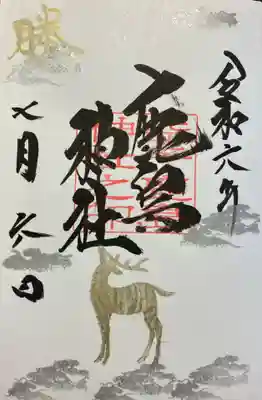 令和六年
鹿島
神社
七月六日
勝